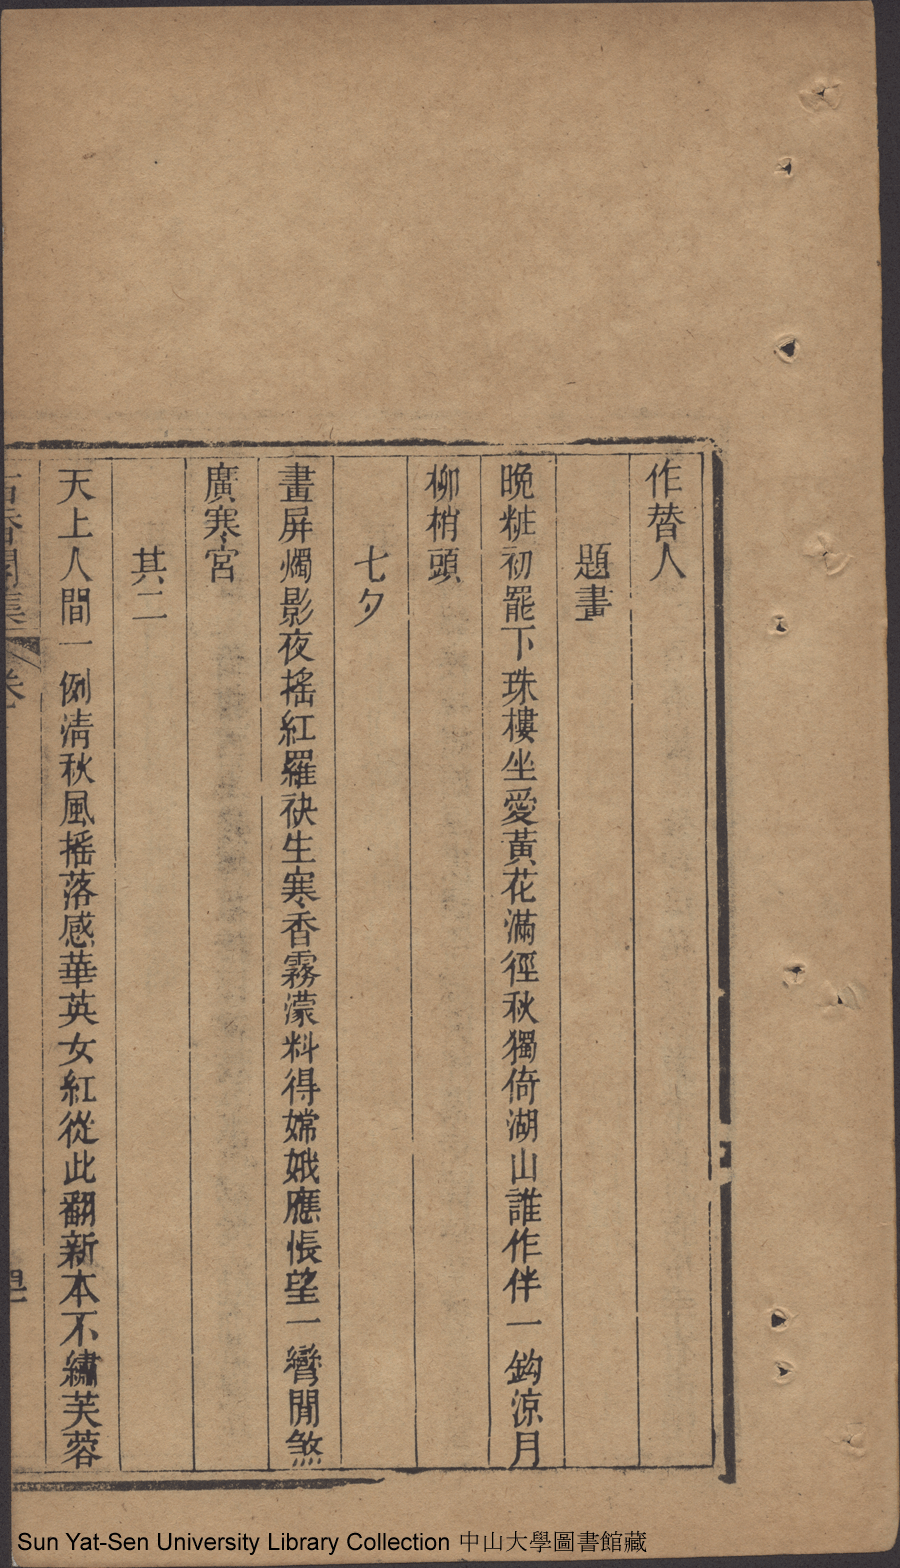 作替人
題畫
晚粧初罷下珠樓坐愛黃花滿徑秋獨倚湖山誰作伴一鈎涼月
柳梢頭
七夕
畫屏燭影夜搖紅羅袂生寒香霧濛料得嫦娥應悵望一彎閒煞
廣寒宮
其二
天上人間一例清秋風搖落感華英女紅從此翻新本不繡芙蓉
Sun Yat-Sen University Library Collection 中山大學圖書館藏